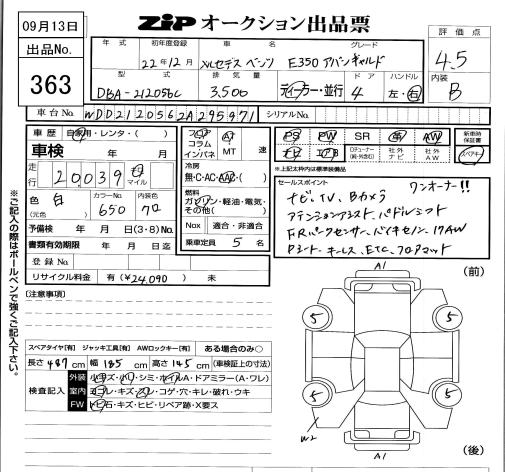 09月13日
出品No.
363
ZIP オークション出品票
評価点
4.5
内装
B
年式 初年度登録 車名 グレード
22年12月 メルセデス ベンツ E350 アバンギャルド
型式 排気量 ドア ハンドル
DBA-212056C 3,500 ディーラー・並行 4 左・右
車台No. WDD2120562A295971 シリアルNo.
車歴 自家用・レンタ・( )
車検 年 月
走行 20,039 キロ マイル
色 白 カラーNo. 650 内装色 クロ
(元色)
予備検 年 月 日(3・8)No.
書類有効期限 年 月 日迄
登録No.
リサイクル料金 有(¥24,090)無
フロア AT
コラム
インパネ MT 速
冷房
無・C・AC・AAC・( )
燃料
ガソリン・軽油・電気・
その他( )
Nox 適合・非適合
乗車定員 5 名
PS PW SR 革 AW
新車時保証書
Dチューナー 社外ナビ 社外AW
スペアキー
※上記太枠内は標準装備品
セールスポイント ワンオーナー!!
ナビ、TV、Bカメラ
アテンションアシスト、パドルシフト
F.Rパークセンサー、バイキセノン、17AW
Pシート、キーレス、ETC、フロアマット
※ご記入の際はボールペンで強くご記入下さい。
[注意事項]
スペアタイヤ[有] ジャッキ工具[有] AWロックキー[有] ある場合のみ○
長さ 487cm 幅 185cm 高さ 145cm (車検証上の寸法)
検査記入
外装 小キズ・小ヘコ・シミ・ホイルA・ドアミラー(A・ワレ)
室内 ヨゴレ・キズ・スレ・コゲ・穴・キレ・破れ・ウキ
FW トビ石・キズ・ヒビ・リペア跡・X要ス
(前)
A1
5 5
5 5
W2
A1
(後)